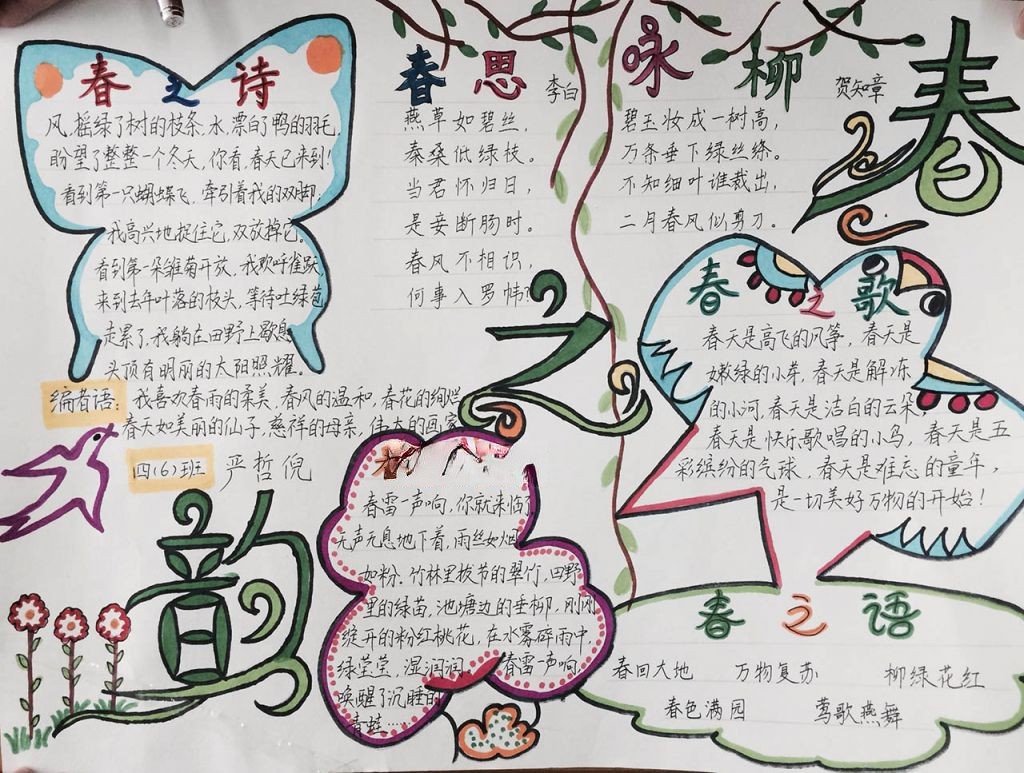 春之诗
风,摇绿了树的枝条,水,漂白了鸭的羽毛,
盼望了整整一个冬天,你看,春天已来到!
看到第一只蝴蝶飞,牵引着我的双脚;
我高兴地捉住它,又放掉它。
看到第一朵雏菊开放,我欢呼雀跃,
来到去年叶落的枝头,等待吐绿苞
走累了,我躺在田野上歇息
头顶有明丽的太阳照耀。
编者语:我喜欢春雨的柔美,春风的温和,春花的绚烂
春天如美丽的仙子,慈祥的母亲,伟大的画家
四(6)班 严哲倪
春思 李白
燕草如碧丝,
秦桑低绿枝。
当君怀归日,
是妾断肠时。
春风不相识,
何事入罗帏?
咏柳 贺知章
碧玉妆成一树高,
万条垂下绿丝绦。
不知细叶谁裁出,
二月春风似剪刀。
春
之
韵
春之歌
春天是高飞的风筝,春天是
嫩绿的小芽,春天是解冻
的小河,春天是洁白的云朵,
春天是快乐歌唱的小鸟,春天是五
彩缤纷的气球,春天是难忘的童年,
是一切美好万物的开始!
春雷一声响,你就来临了
无声无息地下着,雨丝如烟
如粉.竹林里拔节的翠竹,田野
里的绿苗,池塘边的垂柳,刚刚
绽开的粉红桃花,在水雾碎雨中,
绿莹莹,湿润润 春雷一声响,
唤醒了沉睡的
青蛙……
春之语
春回大地 万物复苏 柳绿花红
春色满园 莺歌燕舞